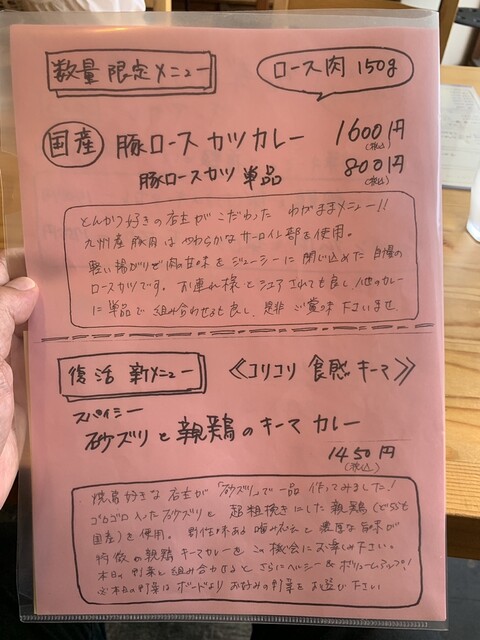 数量限定メニュー
ロース肉 150g
国産 豚ロース カツカレー 1600円
(税込)
豚ロースカツ 単品 800円
(税込)
とんかつ好きの店主がこだわった わがままメニュー!!
九州産豚肉はやわらかなサーロイン部を使用。
軽い揚がりで肉の甘味をジューシーに閉じ込めた自慢の
ロースカツです。お連れ様とシェアされても良し、他のカレー
に単品で組み合わせるも良し、是非ご賞味下さいませ
復活 新メニュー
≪コリコリ 食感 キーマ≫
スパイシー
砂ズリと親鶏のキーマカレー
1450円
(税込)
焼鳥好きな店主が「砂ズリ」で一品作ってみました!
ゴロゴロ入った砂ズリと超粗挽きにした親鶏(どちらも
国産)を使用。野性味ある噛み応えと濃厚な旨味が
特徴の親鶏キーマカレーをこの機会にお楽しみ下さい。
本日の野菜と組み合わせるとさらにヘルシー&ボリュームアップ!
※本日の野菜はボードよりお好みの野菜をお選び下さい